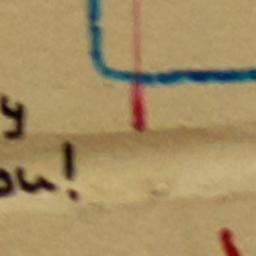 y
ou!